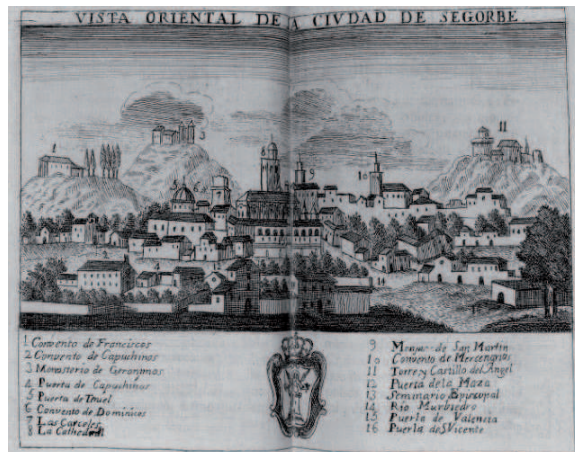 VISTA ORIENTAL DE A CIVDAD DE SEGORBE
1
3
5
6
8
9
10
11
1 Convento de Franciscos
2 Convento de Capuchinos
3 Monasterio de Geronymos
4 Puerta de Capuchinos
5 Puerta de Teruel
6 Convento de Dominicos
7 Las Carceles
8 La Cathedral
9 Monjas de San Martin
10 Convento de Mercenarios
11 Torre y Castillo del Angel
12 Puerta de la Maza
13 Seminario Episcopal
14 Rio Murbiedro
15 Puerta de Valencia
16 Puerta de S Vicente